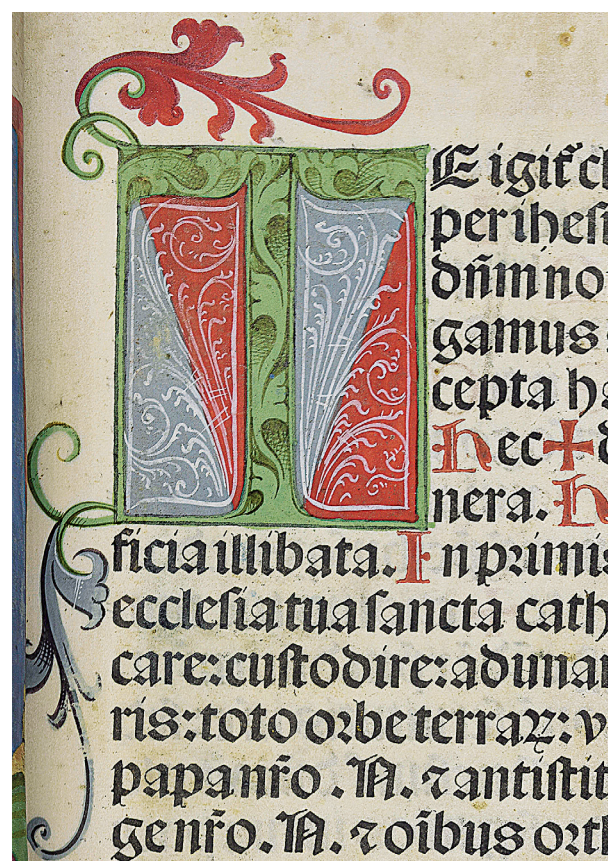 TE igit̃ cl
per ihesũ
dñm no
gamus
cepta ha
hec ✠ d
nera. h
ficia illibata. In primis
ecclesia tua sancta cath
care: custodire: adunar
ris: toto orbe terraꝝ: v
papa nr̃o. N. ⁊ antistit
ge nr̃o. N. ⁊ oĩbus orth